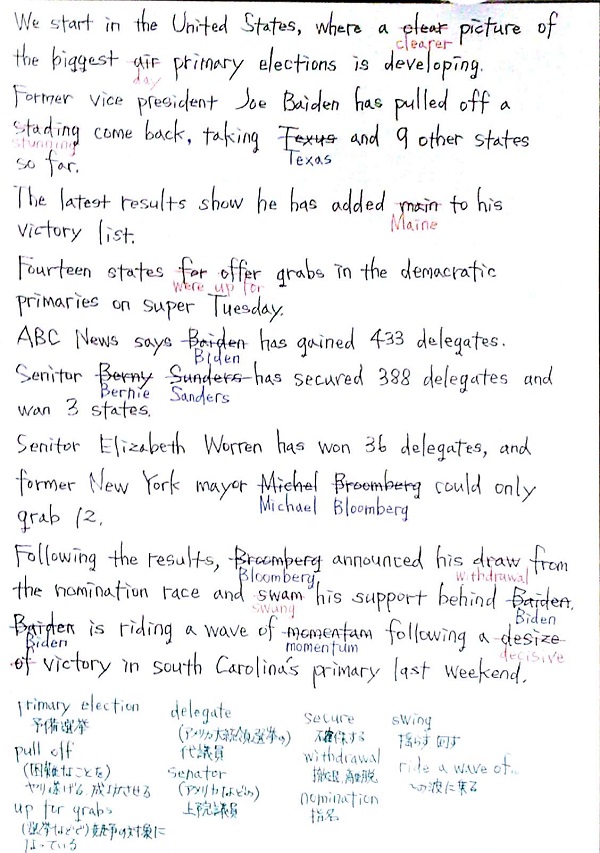 We start in the United States, where a clear picture of
clearer
the biggest air primary elections is developing.
day
Former vice president Joe Baiden has pulled off a
stading come back, taking Texus and 9 other states
stunning Texas
so far.
The latest results show he has added main to his
Maine
victory list.
Fourteen states for offer grabs in the demacratic
were up for
primaries on super Tuesday.
ABC News says Baiden has gained 433 delegates.
Biden
Senitor Berny Sunders has secured 388 delegates and
Bernie Sanders
wan 3 states.
Senitor Elizabeth Worren has won 36 delegates, and
former New York mayor Michel Broomberg could only
Michael Bloomberg
grab 12.
Following the results, Broomberg announced his draw from
Bloomberg withdrawal
the nomination race and swam his support behind Baiden.
swung Biden
Baiden is riding a wave of momentam following a desize
Biden momentum decisive
of victory in south Carolina's primary last weekend.
primary election
予備選挙
pull off
(困難なことを)
やり遂げる, 成功させる
up for grabs
(選挙などで)競争の対象に
なっている
delegate
(アメリカ大統領選挙の)
代議員
senator
(アメリカなどの)
上院議員
secure
確保する
withdrawal
撤退,
nomination
指名
swing
揺らす 回す
ride a wave of..
の波に乗る